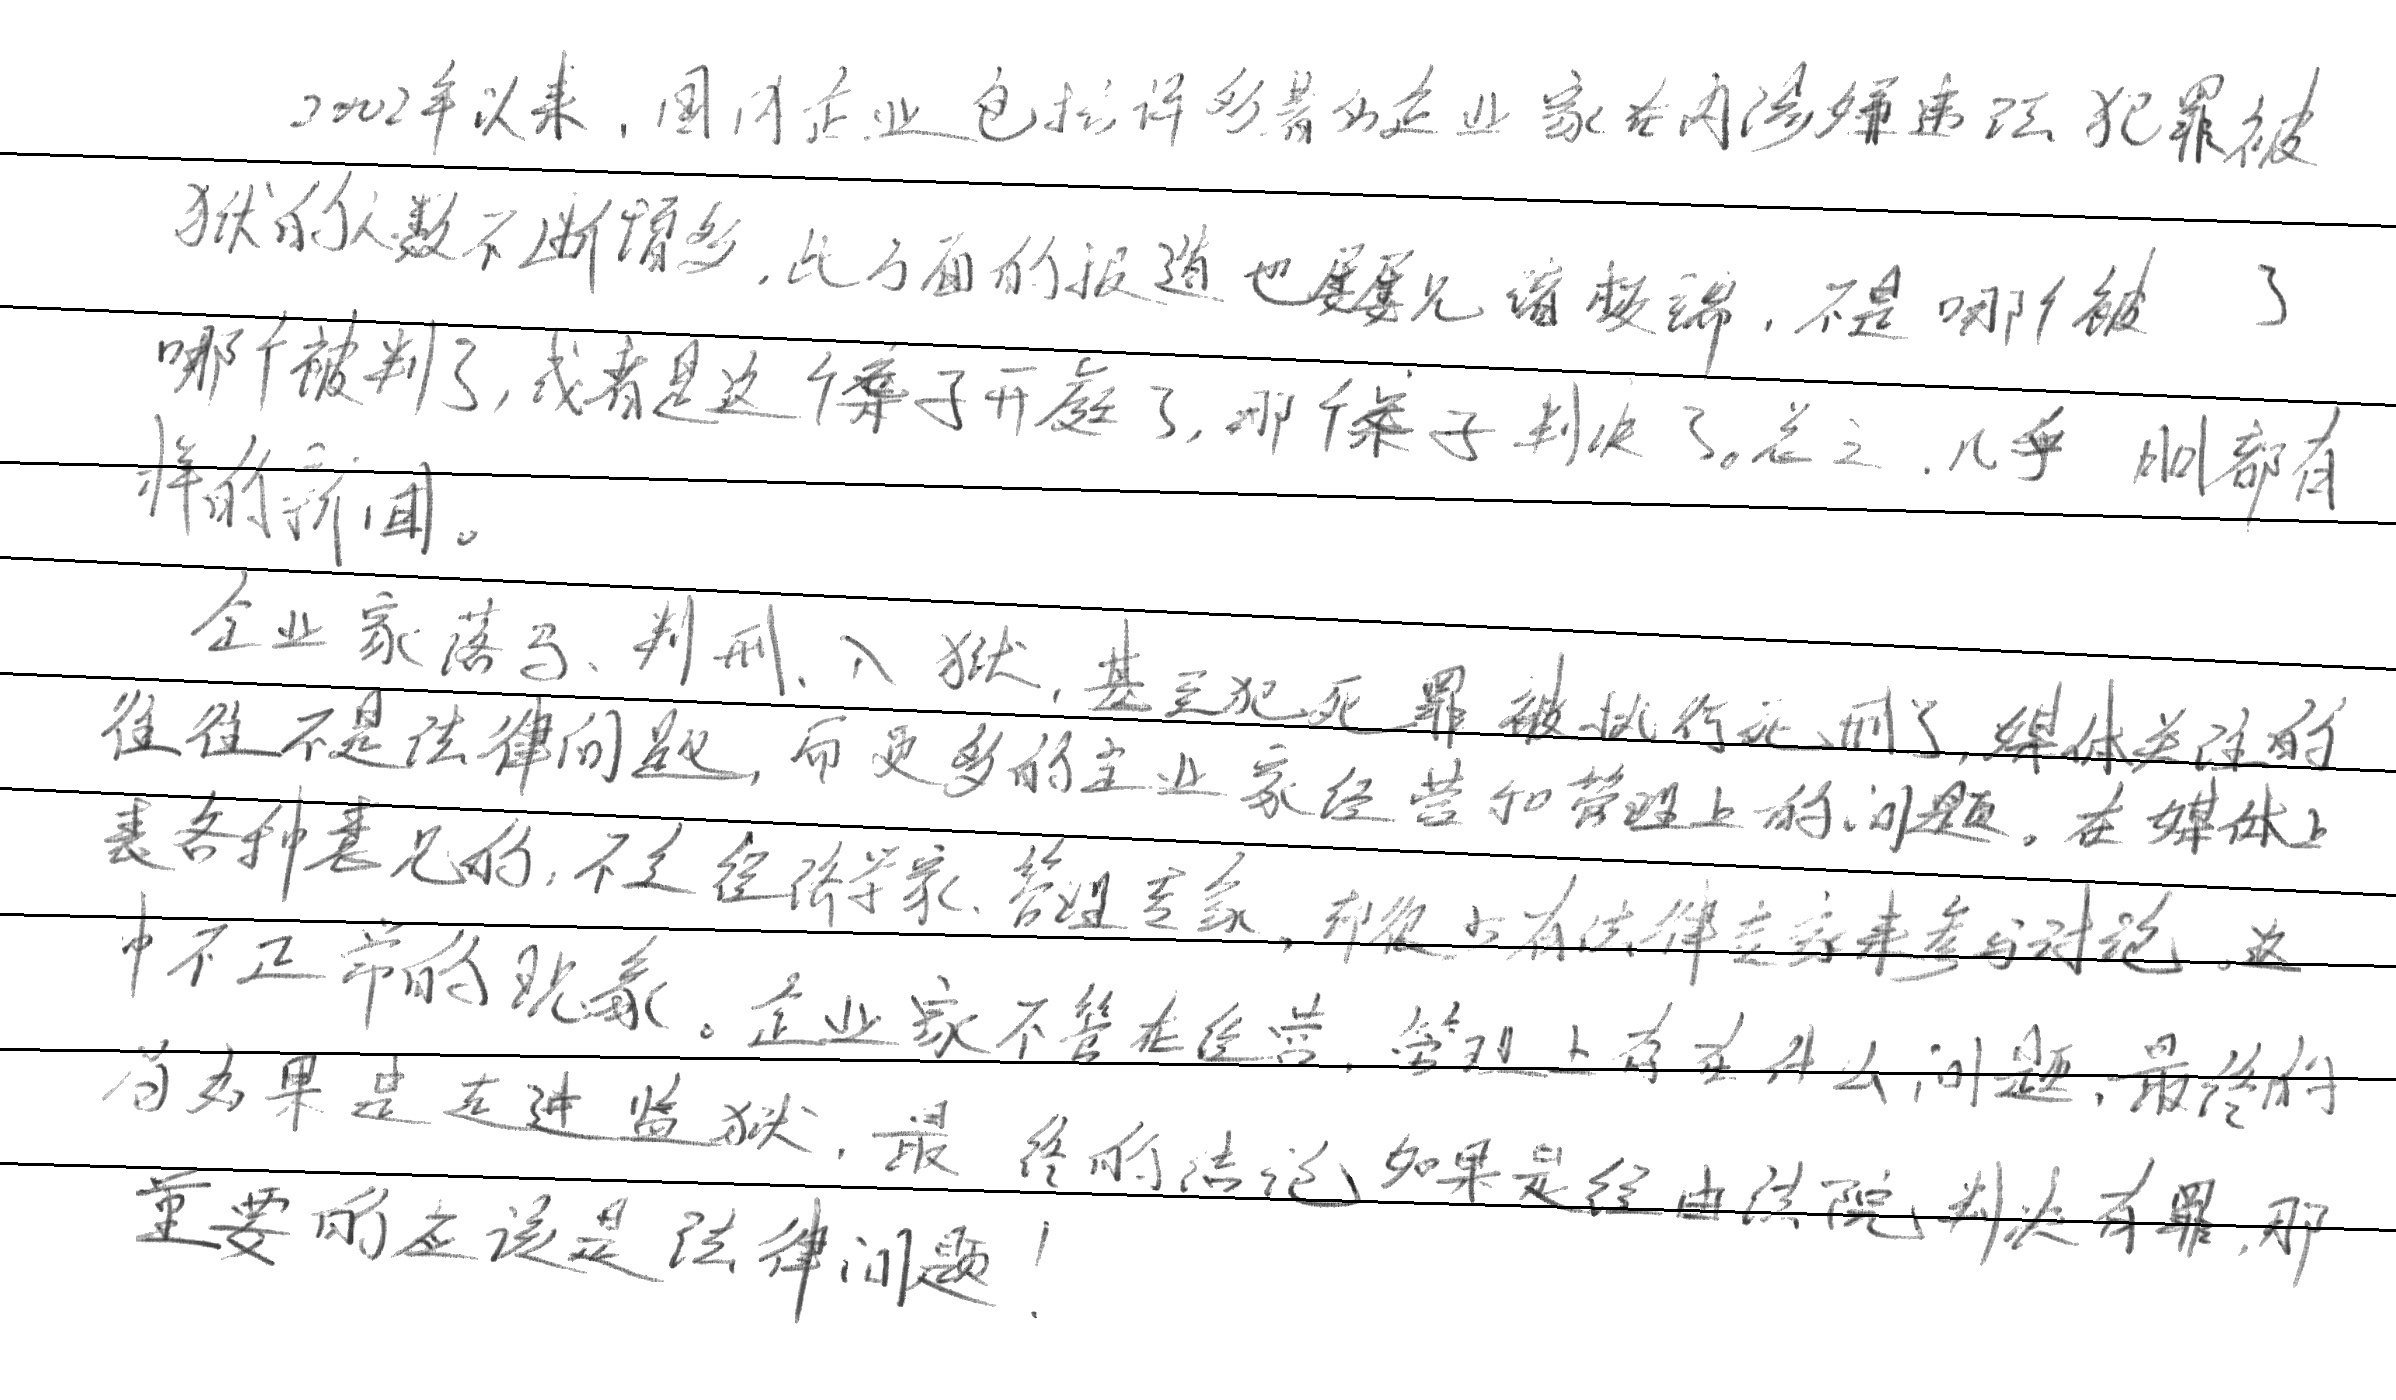 2002年以来，国内企业包括许多著名企业家在内涉嫌违法犯罪被
狱的人数不断增多，此方面的报道也屡屡见诸报端，不是哪个被 了
哪个被判了，或者是这个案子开庭了，那个案子判决了。总之，几乎 都有
样的新闻。
企业家落马、判刑、入狱，甚至犯死罪被执行死刑了，媒体关注的
往往不是法律问题，而更多的企业家经营和管理上的问题。在媒体上
表各种意见的，不是经济学家、管理专家，却很少有法律专家来参与讨论。这
中不正常的现象。企业家不管在经营，管理上存在什么问题，最终的
如果是走进监狱，最终的结论如果是经由法院判决有罪，那
重要的应该是法律问题！